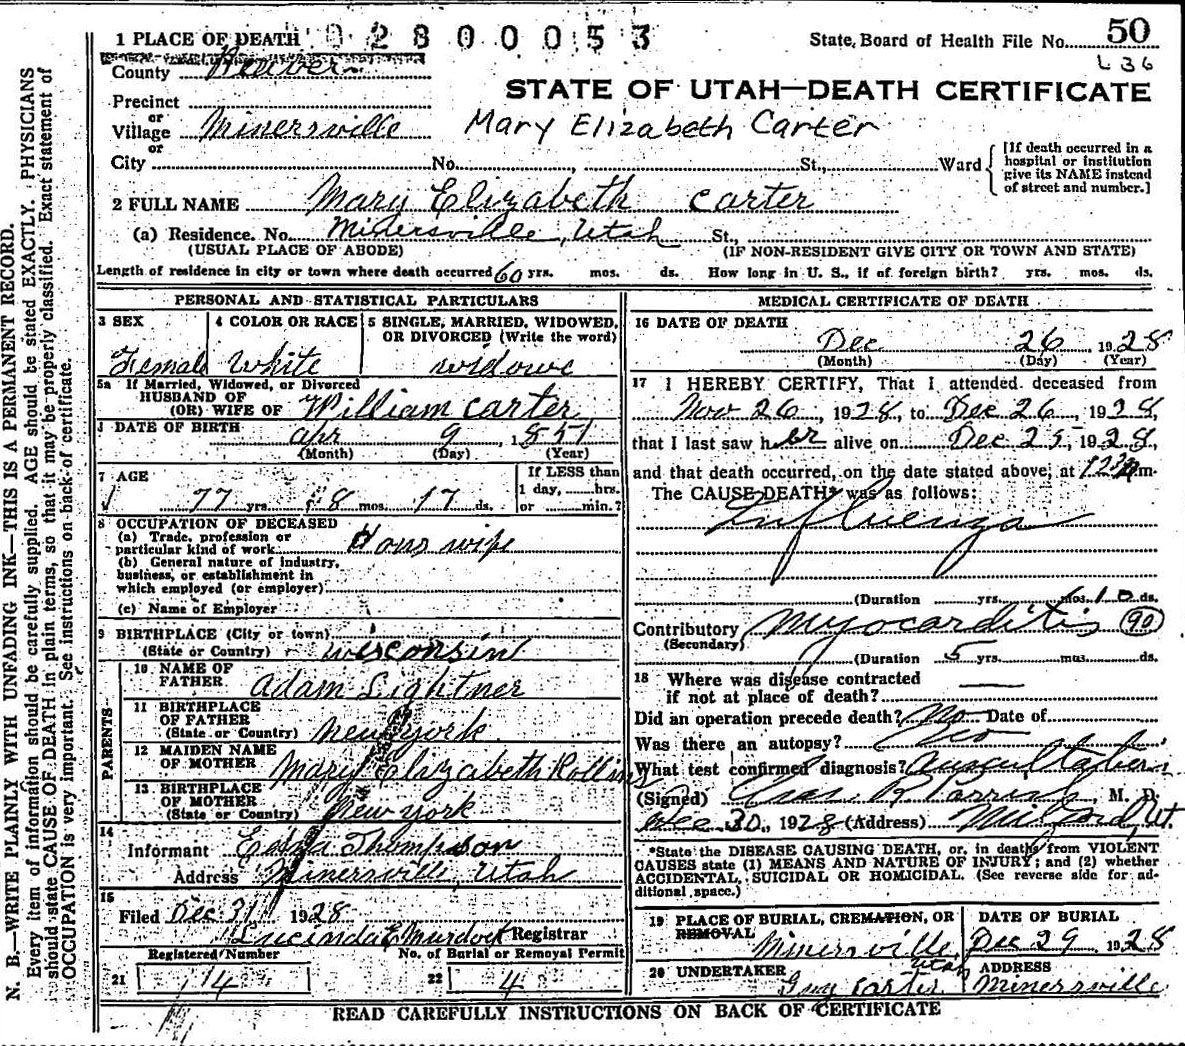 1 PLACE OF DEATH 02800053
State Board of Health File No. 50
L 36
County Beaver
STATE OF UTAH—DEATH CERTIFICATE
Precinct
or
Village Minersville
Mary Elizabeth Carter
or
City No. St., Ward
[If death occurred in a hospital or institution give its NAME instead of street and number.]
2 FULL NAME Mary Elizabeth Carter
(a) Residence. No. Minersville, Utah St.,
(USUAL PLACE OF ABODE) (IF NON-RESIDENT GIVE CITY OR TOWN AND STATE)
Length of residence in city or town where death occurred 60 yrs. mos. ds. How long in U. S., if of foreign birth? yrs. mos. ds.
PERSONAL AND STATISTICAL PARTICULARS
3 SEX
Female
4 COLOR OR RACE
White
5 SINGLE, MARRIED, WIDOWED, OR DIVORCED (Write the word)
widowe
5a If Married, Widowed, or Divorced
HUSBAND OF
(OR) WIFE OF William Carter
DATE OF BIRTH Apr 9, 1851
(Month) (Day) (Year)
7 AGE
77 yrs. 8 mos. 17 ds.
If LESS than
1 day, hrs.
or min.?
8 OCCUPATION OF DECEASED
(a) Trade, profession or
particular kind of work Hous wife
(b) General nature of industry,
business, or establishment in
which employed (or employer)
(c) Name of Employer
9 BIRTHPLACE (City or town)
(State or Country) Wisconsin
PARENTS
10 NAME OF
FATHER Adam Lightner
11 BIRTHPLACE
OF FATHER
(State or Country) New York
12 MAIDEN NAME
OF MOTHER Mary Elizabeth Rollins
13 BIRTHPLACE
OF MOTHER
(State or Country) New York
14
Informant Edna Thompson
Address Minersville, Utah
15
Filed Dec 31, 1928
Lucinda E Murdock Registrar
Registered Number No. of Burial or Removal Permit
21 14 22 4
MEDICAL CERTIFICATE OF DEATH
16 DATE OF DEATH
Dec 26 1928
(Month) (Day) (Year)
17 I HEREBY CERTIFY, That I attended deceased from
Nov 26, 1928, to Dec 26, 1928,
that I last saw her alive on Dec 25, 1928,
and that death occurred, on the date stated above, at 12 m.
The CAUSE DEATH* was as follows:
Influenza
(Duration yrs. mos. 10 ds.
Contributory Myocarditis 90
(Secondary)
(Duration 5 yrs. mos. ds.
18 Where was disease contracted
if not at place of death?
Did an operation precede death? No Date of
Was there an autopsy? No
What test confirmed diagnosis? Auscultation
(Signed) Chas. R Parrish, M. D.
Dec 30, 1928 (Address) Milford, Ut.
*State the DISEASE CAUSING DEATH, or, in deaths from VIOLENT
CAUSES state (1) MEANS AND NATURE OF INJURY; and (2) whether
ACCIDENTAL, SUICIDAL OR HOMICIDAL. (See reverse side for ad-
ditional space.)
19 PLACE OF BURIAL, CREMATION, OR REMOVAL
Minersville, Utah
DATE OF BURIAL
Dec 29 1928
20 UNDERTAKER
Guy Carter
ADDRESS
Minersville
READ CAREFULLY INSTRUCTIONS ON BACK OF CERTIFICATE
N. B.—WRITE PLAINLY WITH UNFADING INK—THIS IS A PERMANENT RECORD.
Every item of information should be carefully supplied. AGE should be stated EXACTLY. PHYSICIANS
should state CAUSE OF DEATH in plain terms, so that it may be properly classified. Exact statement of
OCCUPATION is very important. See instructions on back of certificate.